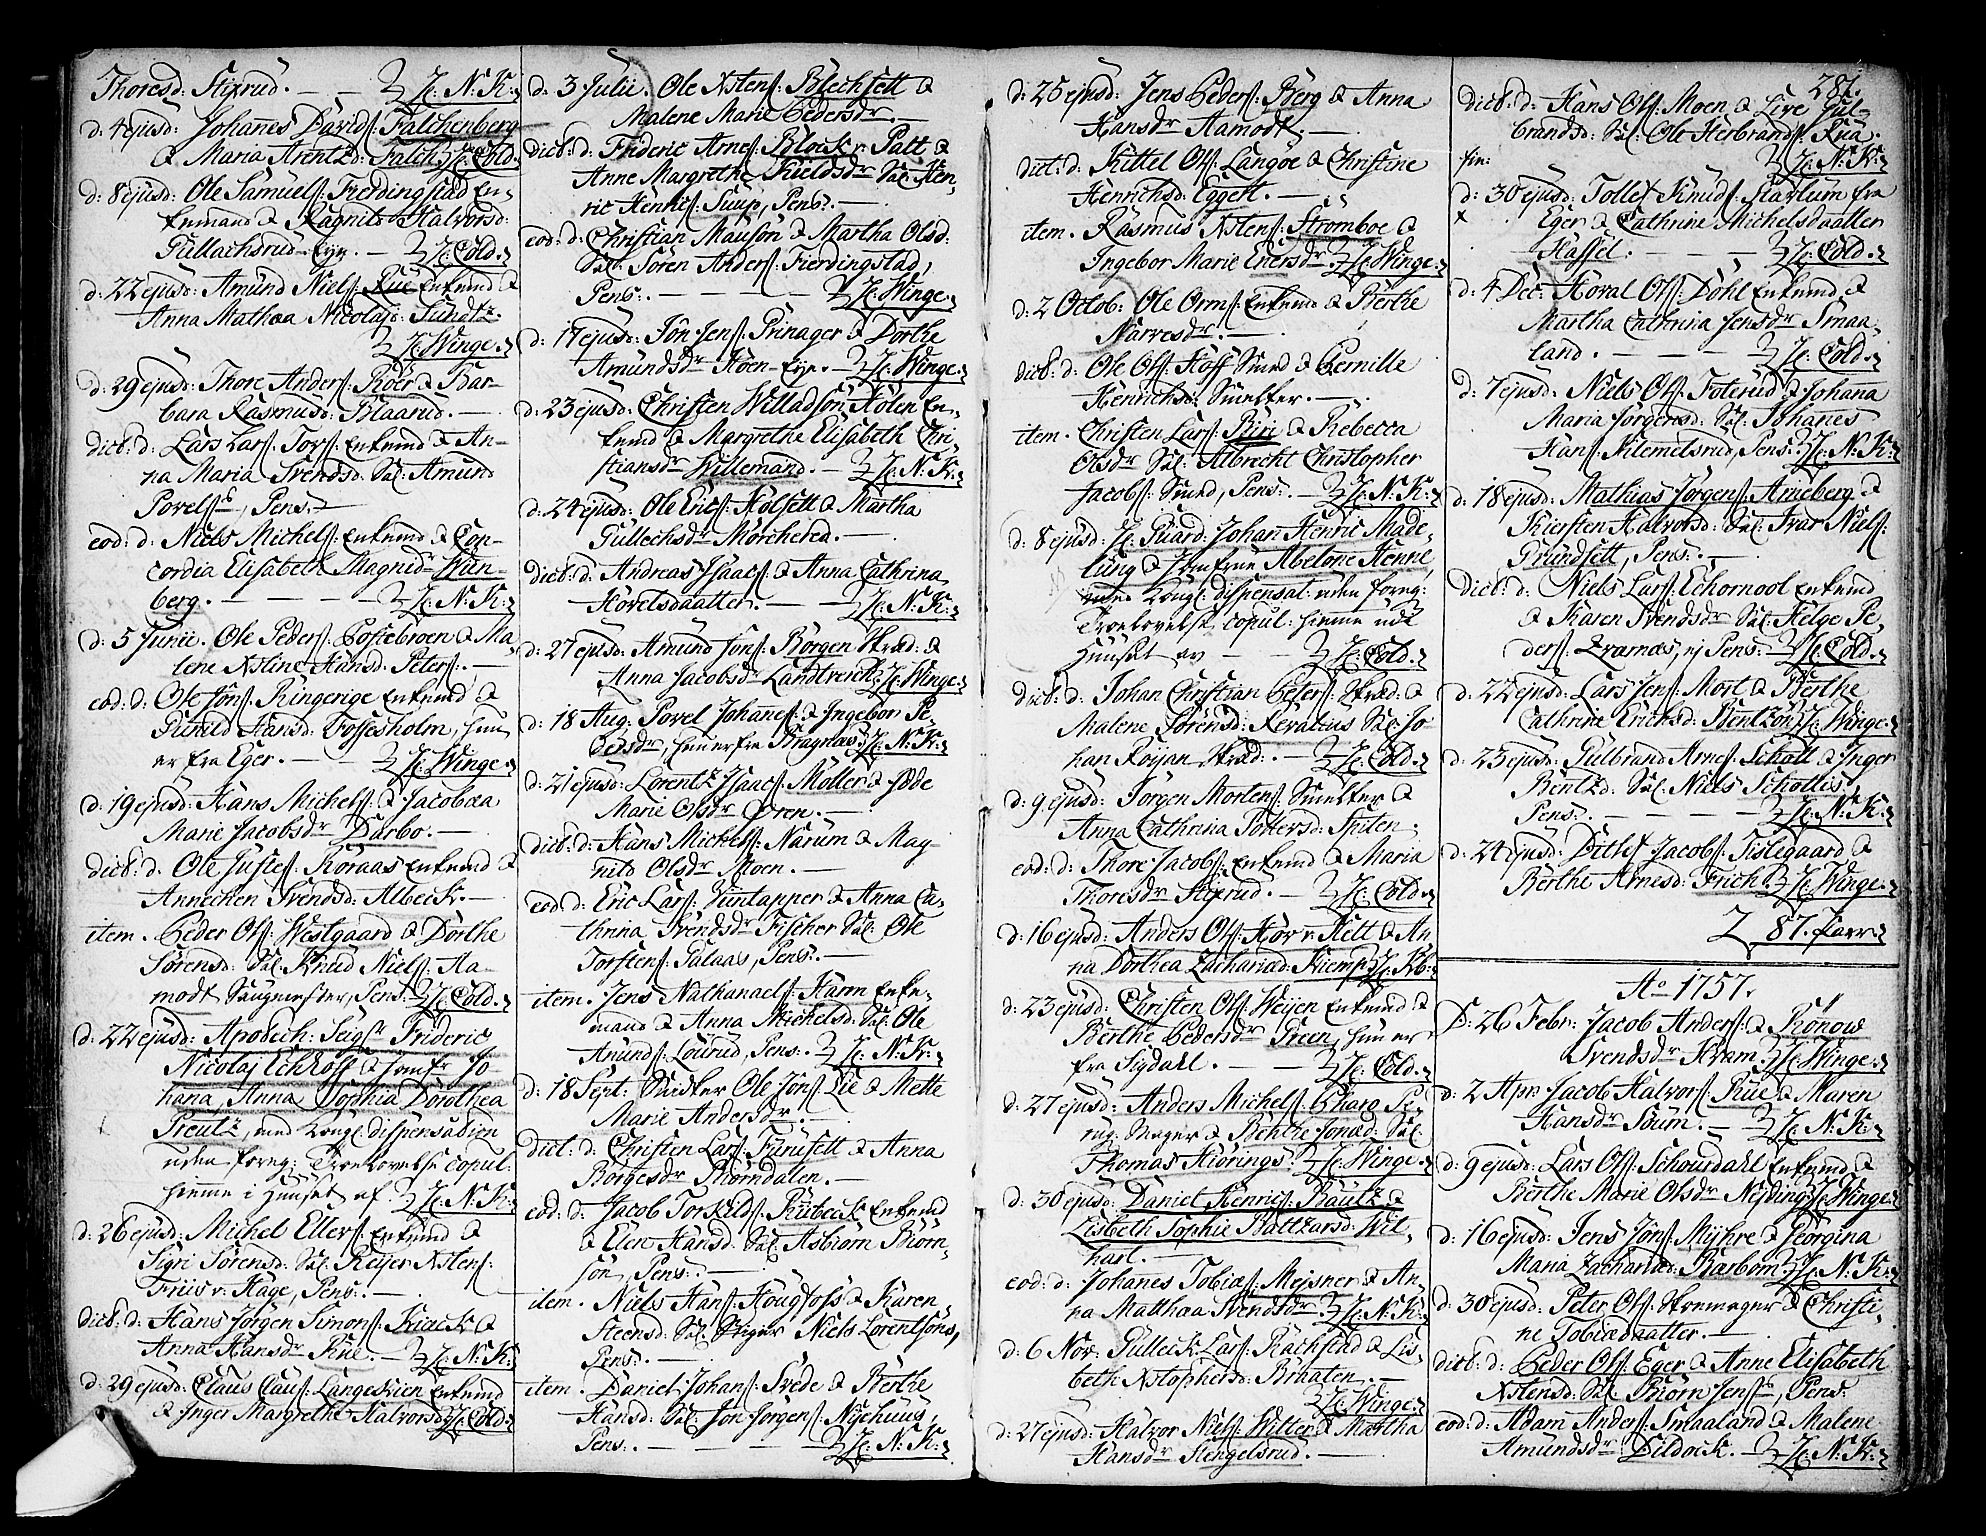 Thoresd: Stixrud. — — H: N: K:
d: 4 ejusd: Johanes Davids: Falchenberg
& Maria Arentzd: Falch. H: Cold.
d: 8 ejusd: Ole Samuels: Fierdingstad En-
kemand & Ragnild Halvorsd:
Gullachsrud-Eye. — H: Cold.
d: 22 ejusd: Amund Niels: Rue Enkemd &
Anna Mathæa Nicolaj: Sundtz.
H: Winge.
d: 29 ejusd: Thore Anders: Röer & Bar-
bara Rasmusd: Blaarud. —
dict: d: Lars Lars: Tors: Enkemd & An-
na Maria Svendsd: Sal: Amund
Povels:, Pens: —
eod: d: Niels Michels: Enkemd & Con-
cordia Elisabeth Magnidr Wun-
berg. — — — H: N: K:
d: 5 Junii. Ole Peders: Gostebroen & Ma-
lene Nstine Hansd: Peters: —
eod: d: Ole Jöns: Ringerige Enkemd &
Gunild Hansd: Fossesholm, hun
er fra Eger. — H: Winge.
d: 19 ejusd: Hans Michels: & Jacobæa
Marie Jacobsdr Darbo. —
dict: d: Ole Justes: Koraas Enkemd &
Annechen Svendsd: Albeck. —
item. Peder Ols: Westgaard & Dorthe
Sörensd: Sal: Knud Niels: Aa-
modt Saugmester, Pens: H: Cold.
d: 22 ejusd: Apothech: Seigr Frideric
Nicolaj Eckhoff & Jomfr Jo-
hana, Anna Sophia Dorothea
Preutz, med Kongl: dispensation
uden foreg: Troelovelse copul:
hiemme i Huuset af H: N: K:
d: 26 ejusd: Michel Ellers: Enkemd &
Sigri Sörensd: Sal: Reijer Nstens:
Friis v: Hage, Pens: —
dict: d: Hans Jörgen Simons: Kieck &
Anna Hansdr Rue. — H: N: K:
d: 29 ejusd: Claus Claus: Langeskien Enkemd
& Inger Margrethe Halvorsd: H: Cold.
d: 3 Julii. Ole Nstens: Blechsett &
Malene Marie Pedersdr. —
dict: d: Frideric Arnes: Block v: Patt &
Anne Margrethe Kieldsdr Sal: Hen-
ric Henrics: Suup, Pens: —
eod: d: Christian Mausön & Martha Olsd:
Sal: Sören Anders: Fierdingstad,
Pens: — — H: Winge.
d: 17 ejusd: Jön Jens: Prinager & Dorthe
Amundsdr Hoen-Eye. — H: Winge.
d: 23 ejusd: Christen Willadsön Holen En-
kemd & Margrethe Elisabeth Chri-
stiansdr Willemand. — H: N: K:
d: 24 ejusd: Ole Erics: Holsett & Martha
Gullechsdr Mörchered. —
dict: d: Andreas Isaacs: & Anna Cathrina
Hovelsdaatter. — — H: N: K:
d: 27 ejusd: Amund Jöns: Börgen Skræd: &
Anna Jacobsdr Landtreich. H: Winge.
d: 18 Aug. Povel Johanes: & Ingebor Pe-
dersdr, hun er fra Bragnæs. H: N: K:
d: 21 ejusd: Lorentz Isaacs: Möller & Ide
Marie Olsdr Ören. —
dict: d: Hans Michels: Narum & Mag-
nild Olsdr Moen. —
eod: d: Eric Lars: Viintapper & Anna Ca-
thrina Svendsdr Fischer Sal: Ole
Torstens: Palaas, Pens: —
item. Jens Nathanaels: Harm Enke-
mand & Anna Michelsd: Sal: Ole
Amunds: Lourud, Pens: H: N: K:
d: 18 Sept: Smelter Ole Jöns: Lie & Mette
Marie Andersdr. —
dict: d: Christen Lars: Furusett & Anna
Börgesdr Thörndalen. —
eod: d: Jacob Torkilds: Rubeck Enkemd
& Elen Hansd: Sal: Asbiörn Biörn-
sön, Pens: —
item. Niels Hans: Hougfoss & Karen
Steensd: Sal: Stiger Niels Lorentsöns,
Pens: —
item. Daniel Johans: Svede & Berthe
Hansd: Sal: Jon Jörgens: Nyehuus,
Pens: — — — H: N: K:
d: 25 ejusd: Jens Peders: Berg & Anna
Hansdr Aamodt. —
dict: d: Kittel Ols: Langöe & Christine
Henrichsd: Eggert. —
item. Rasmus Nstens: Stromboe &
Ingebor Marie Enersdr H: Winge.
d: 2 Octob: Ole Orms: Enkemd & Berthe
Narvesdr. —
dict: d: Ole Ols: Hoff Smed & Pernille
Henrichsd: Smelter. —
item. Christen Lars: Büri & Rebecca
Olsdr Sal: Albrecht Christopher
Jacobs: Smed, Pens: — H: N: K:
d: 8 ejusd: H: Guard: Johan Henric Made-
lung & Jomfrue Abelone Henne,
med Kongl: dispensat: uden foreg:
Troelovelse copul: hiemme udi
Huuset av — — H: Cold.
dict: d: Johan Christian Peters: Skræd: &
Malene Sörensd: Keratius Sal: Jo-
han Röijan Skræd: — H: Cold.
d: 9 ejusd: Jörgen Mortens: Smelter &
Anna Cathrina Pottersd: Spiten.
eod: d: Thore Jacobs: Enkemd & Maria
Thoresdr Stixrud. — H: Cold.
d: 16 ejusd: Anders Ols: Hov v: Hett & An-
na Dorthea Zachariæd: Kiemp H: Kb.
d: 23 ejusd: Christen Ols: Weijen Enkemd &
Berthe Pedersdr Preen, hun er
fra Sigdahl. — — H: Cold.
d: 27 ejusd: Anders Michels: Pharo Pe-
rug: Mager & Behtre Jonæd: Sal:
Thomas Hiörings. H: Winge.
d: 30 ejusd: Daniel Henrics: Bautz &
Lisbeth Sophie Baltzarsd: Wil-
hart.
eod: d: Johanes Tobiæs: Mejsner & An-
na Matthæa Svendsdr H: N: K:
d: 6 Nov: Gulleick Lars: Rachstad & Lis-
beth Nstophersd: Braaten. —
H: Winge.
d: 27 ejusd: Halvor Niels: Witter & Martha
Hansdr Stengelsrud. —
281.
dict: d: Hans Ols: Moen & Live Gul-
brandsd: Sal: Ole Herbrands: Rua.
fin: H: N: K:
d: 30 ejusd: Tollef Knuds: Starlum fra
x Eger & Cathrine Michelsdaatter
Hassel. — — H: Cold.
d: 4 Dec: Hoval Ols: Döhl Enkemd &
Martha Cathrina Jensdr Smaa-
land. — — — H: Cold.
d: 7 ejusd: Niels Ols: Foterud & Johana
Maria Jörgensd: Sal: Johanes
Hans: Klemetsrud, Pens: H: N: K:
d: 18 ejusd: Mathias Jörgens: Arneberg &
Kiersten Halvorsd: Sal: Ivar Niels:
Grundsett, Pens: —
dict: d: Niels Lars: Echornool Enkemd
& Karen Svendsdr Sal: Helge Pe-
ders: Kramas, ej Pens: H: Cold.
d: 22 ejusd: Lars Jens: Mort & Berthe
Cathrine Erichsd: Bentzön H: Winge.
d: 23 ejusd: Gulbrand Arnes: Schott & Inger
Bentzd: Sal: Niels Schottis,
Pens: — — — H: N: K:
d: 24 ejusd: Ditlefs Jacobs: Tislegaard &
Berthe Arnesd: Frich. H: Winge.
87. Parr
Ao 1757.
D: 26 Febr: Jacob Anders: & Rönow
Svendsdr Kram. H: Winge.
d: 2 Apr: Jacob Halvors: Rue & Maren
Hansdr Bruun. — H: N: K:
d: 9 ejusd: Lars Ols: Schousdahl Enkemd &
Berthe Marie Olsdr Nejding H: Winge.
d: 16 ejusd: Jens Jöns: Myhre & Georgina
Maria Zachariæd: Barbom H: N: K:
d: 30 ejusd: Peter Ols: Skomager & Christi-
ne Tobiædaatter. —
dict: d: Peder Ols: Eger & Anne Elisabeth
Nstensd: Sal: Biörn Jens:, Pens:
eod: d: Adam Anders: Smaaland & Malene
Amundsdr Dildock. — H: N: K: